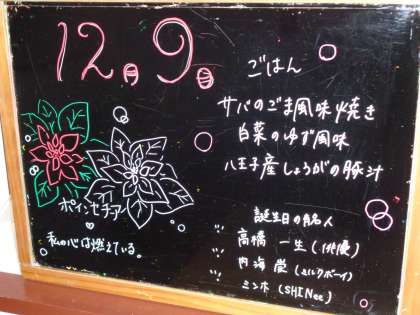 12月9日
ごはん
サバのごま風味焼き
白菜のゆず風味
八王子産しょうがの豚汁
ポインセチア
私の心は燃えている。
誕生日の有名人
高橋一生(俳優)
内海崇(ミルクボーイ)
ミンホ(SHINee)